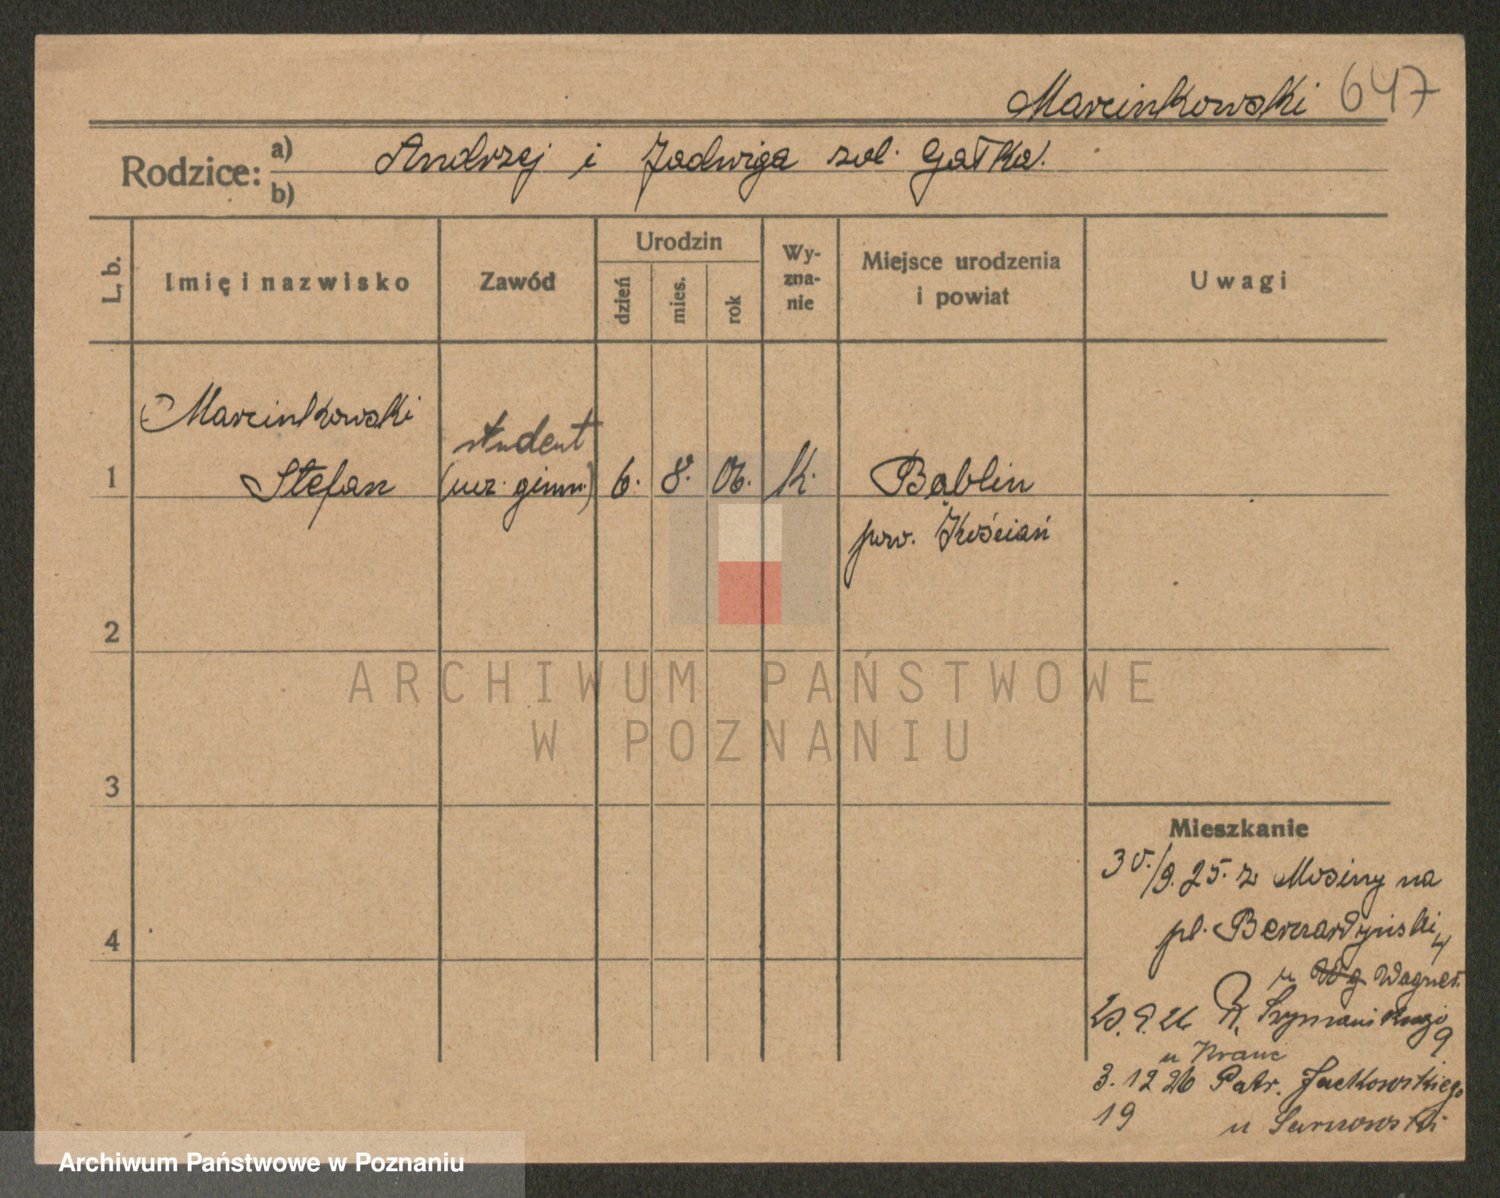 Marcinkowski 647
Rodzice: a) Andrzej i Jadwiga zol. Gałka.
b)
L. b.
Imię i nazwisko
Zawód
Urodzin
dzień
mies.
rok
Wy-
zna-
nie
Miejsce urodzenia
i powiat
Uwagi
Marcinkowski
student
1 Stefan (ucz. gimn.) 6. 8. 06. K. Bąblin
pow. Kościań
2
3
4
ARCHIWUM PAŃSTWOWE
W POZNANIU
Mieszkanie
30./9. 25. z Mosiny na
pl. Bernardyński 4
u Wagner.
29. 9. 26 Szymańskiego
9
u Kranc
3. 12 26 Patr. Jackowskiego
19 u Sarnowski
Archiwum Państwowe w Poznaniu